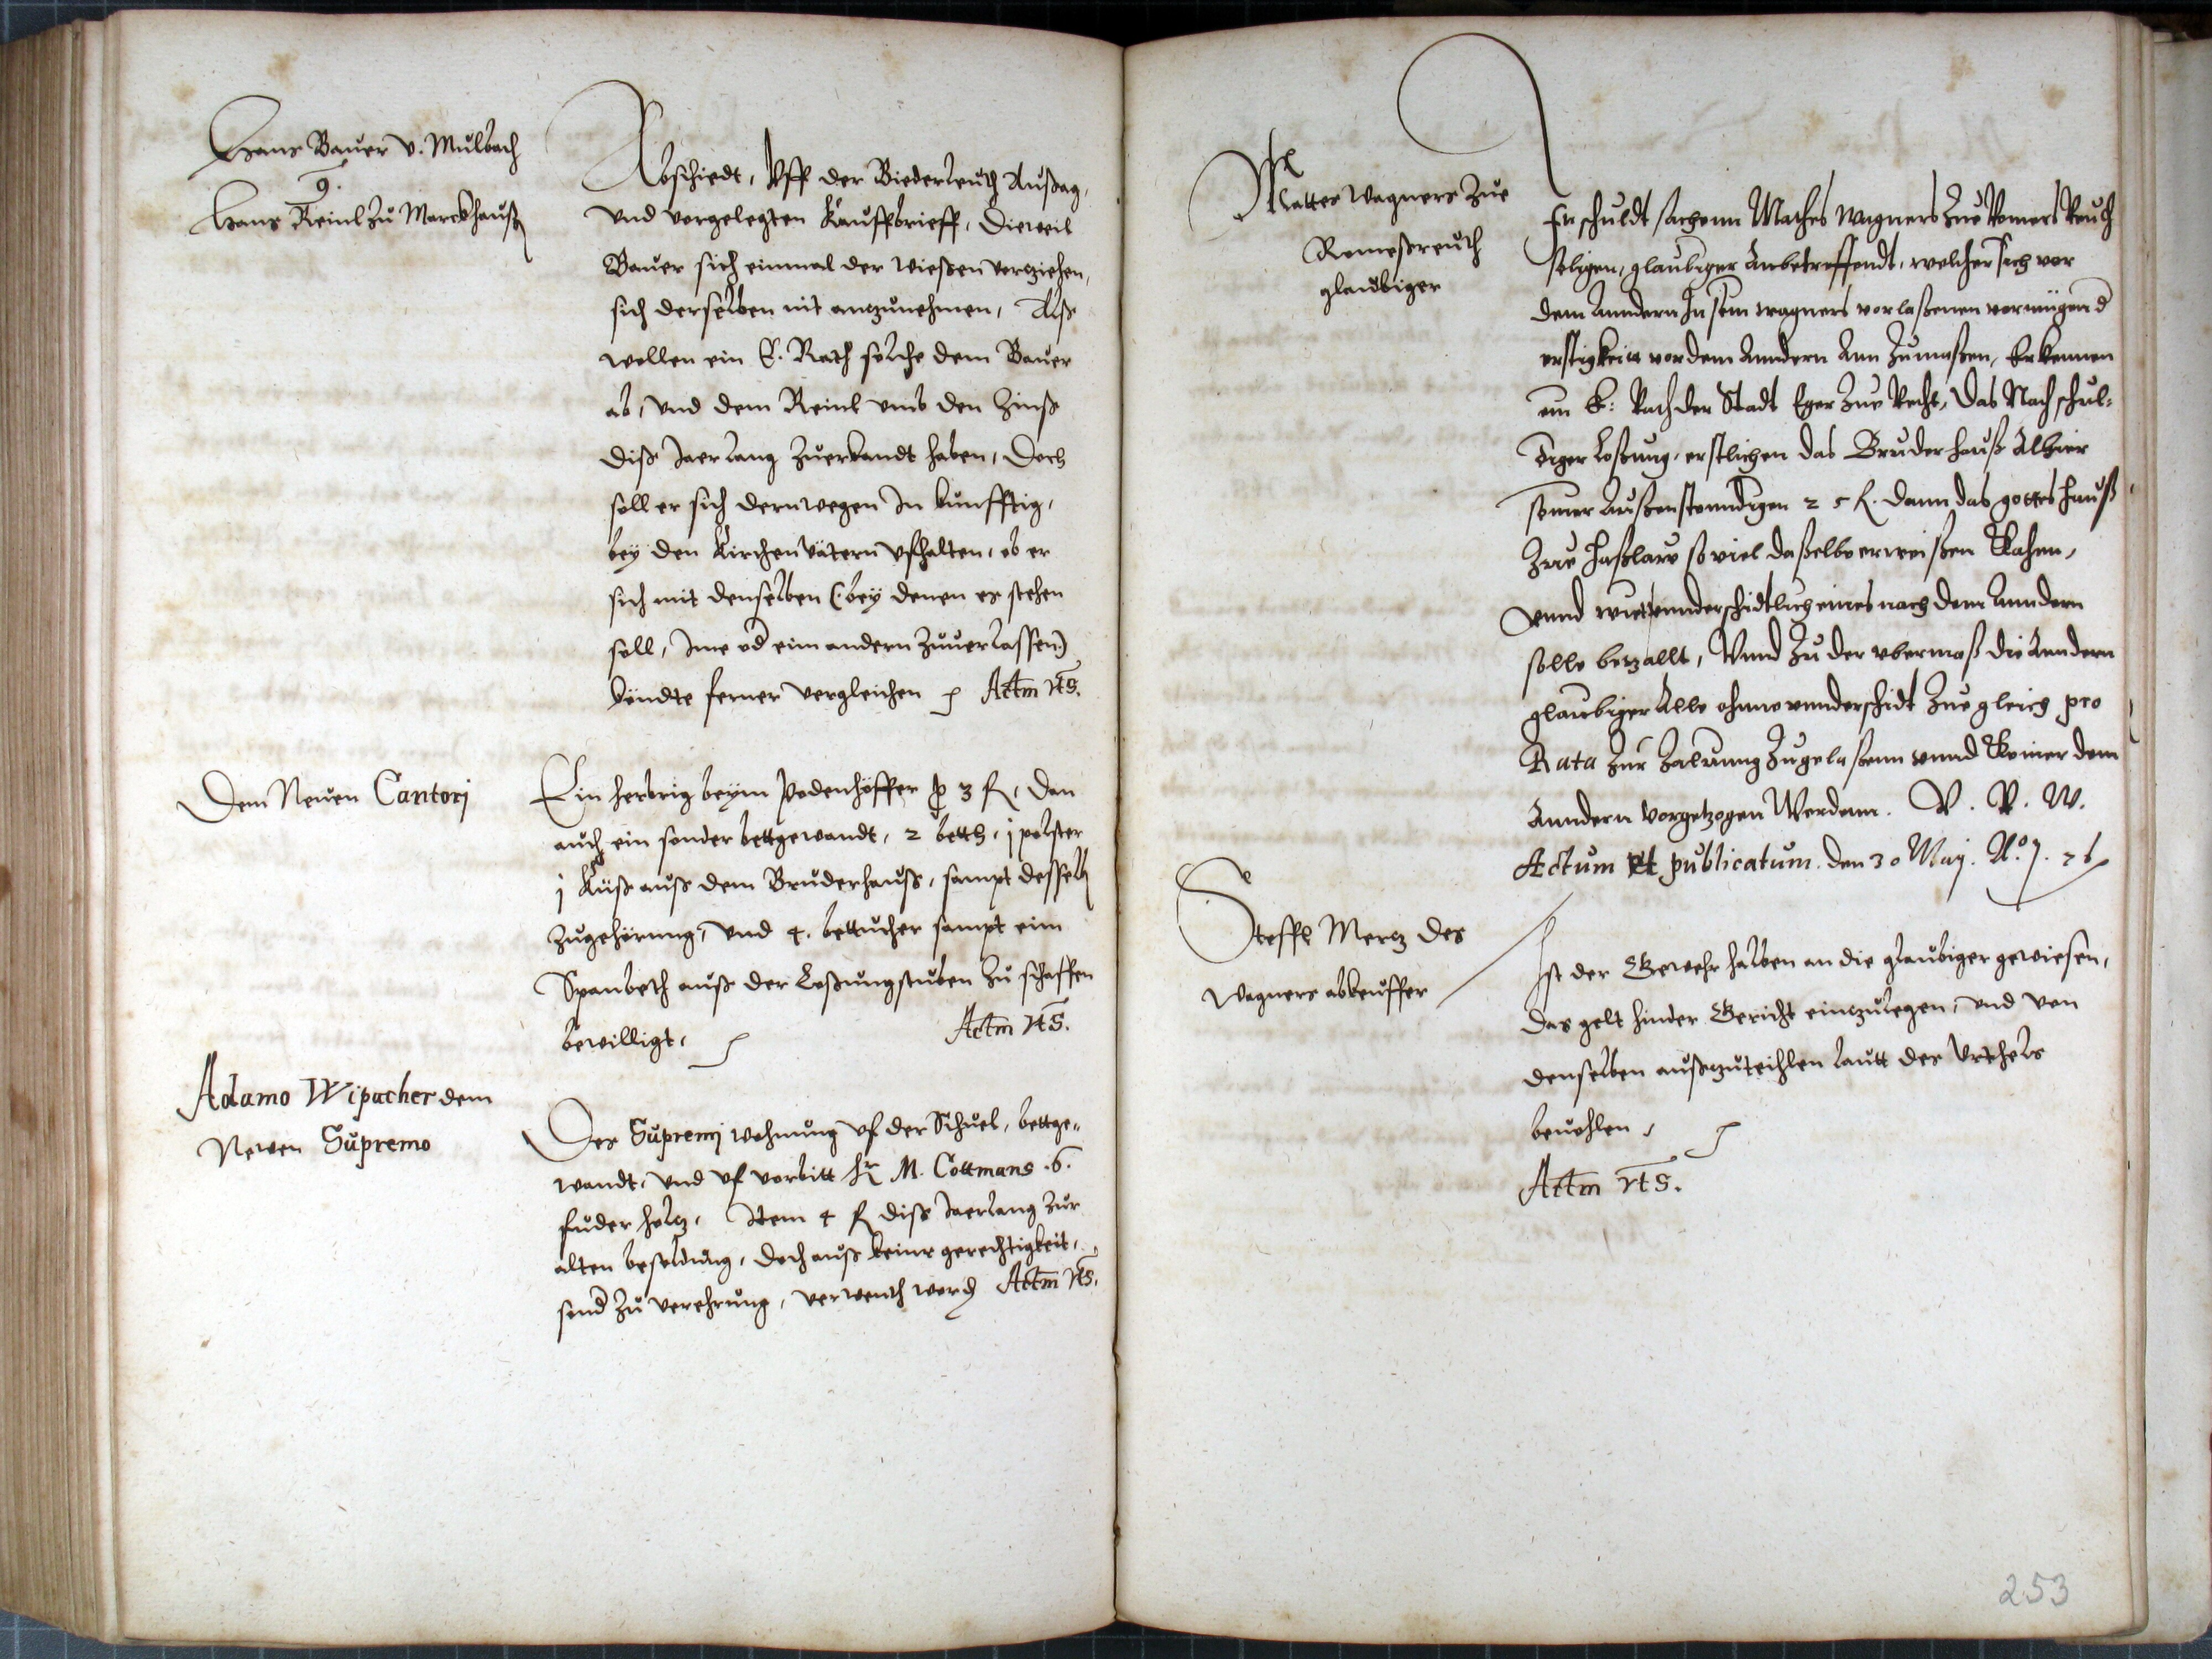 Hans Bauer v. Mulbach
g.
Hans Reinl zu Marckhauß
Abschiedt, Vff der Biederleuth Außag,
vnd vorgelegten Kauffbrieff, Dieweil
Bauer sich einmal der wießen verziehen,
sich derselben nit anzunehmen, Alß
wollen ein E. Rath solche dem Bauer
ab, vnd dem Reinl vmb den Zinß
diß Jaerlang zuerkandt haben, Doch
soll er sich dernwegen In kunfftig,
bey den Kirchenvätern vfhalten, ob er
sich mit denselben (: bey denen es stehen
soll, Ime od eim andern zuuerlassen)
köndte ferner vergleichen Actm vts.
Dem Neuen Cantorj
Ein herbrig beym Podenhöffer p 3 fl, dan
auch ein sonder bettgewandt, 2 betth, j polster
j Küß auß dem Bruderhauß, sampt desselb
zugehörung, vnd 4. bettucher sampt eim
Spanbeth auß der Loßungstuben zu schaffen
bewilligt, Actm vts.
Adamo Wipacher dem
Newen Supremo
Des Supremj wohnung vf der Schuel, bettge-
wandt, vnd vf vorbitt Hr M. Cottmans .6.
fuder holtz, Item 4 fl diß Jaerlang zur
alten besoldung, doch auß keiner gerechtigkeit,
sond zu verehrung, word Actm vts.
Mattes Wagners Zue
Romeßreuth
glaubiger
In schuldt sachenn Mathes Wagners Zue Romersreuth
seligen, glaubiger Anbetreffendt, welcher sich vor
dem Anndern In sein wagners verlaßenen vermügen d
erstigkeit vor dem Anndern Ann Zumaßen, Erkennen
ein E: Rath der Stadt Eger Zue Recht, Das Nach schul-
diger Loßung, erstlichen das Bruderhauß Alhier
seiner Außenstenndigen 25 fl. dann das gotteshauß
Zue Haßlaw so viel daßelb erweißen
vnnd vnnderschidtlich eines nach dem Anndern
solle bezallt, Vnnd Zu der vbermaß die Anndern
glaubiger Alle ohnne vnnderschidt Zue gleich pro
Rata Zur Zalung Zugelaßenn vnnd Keiner dem
Anndern vorgetzogen Werdenn. V. R. W.
Actum et publicatum. den 30 Maij. Ao. 76
Steffl Mertz des
Wagners abkeuffer
Ist der Gewehr halben an die glaubiger gewiesen,
das gelt hinder Gericht einzulegen, vnd von
denselben außzuteihlen lautt des Vrthels
beuohlen,
Actm vts.
253